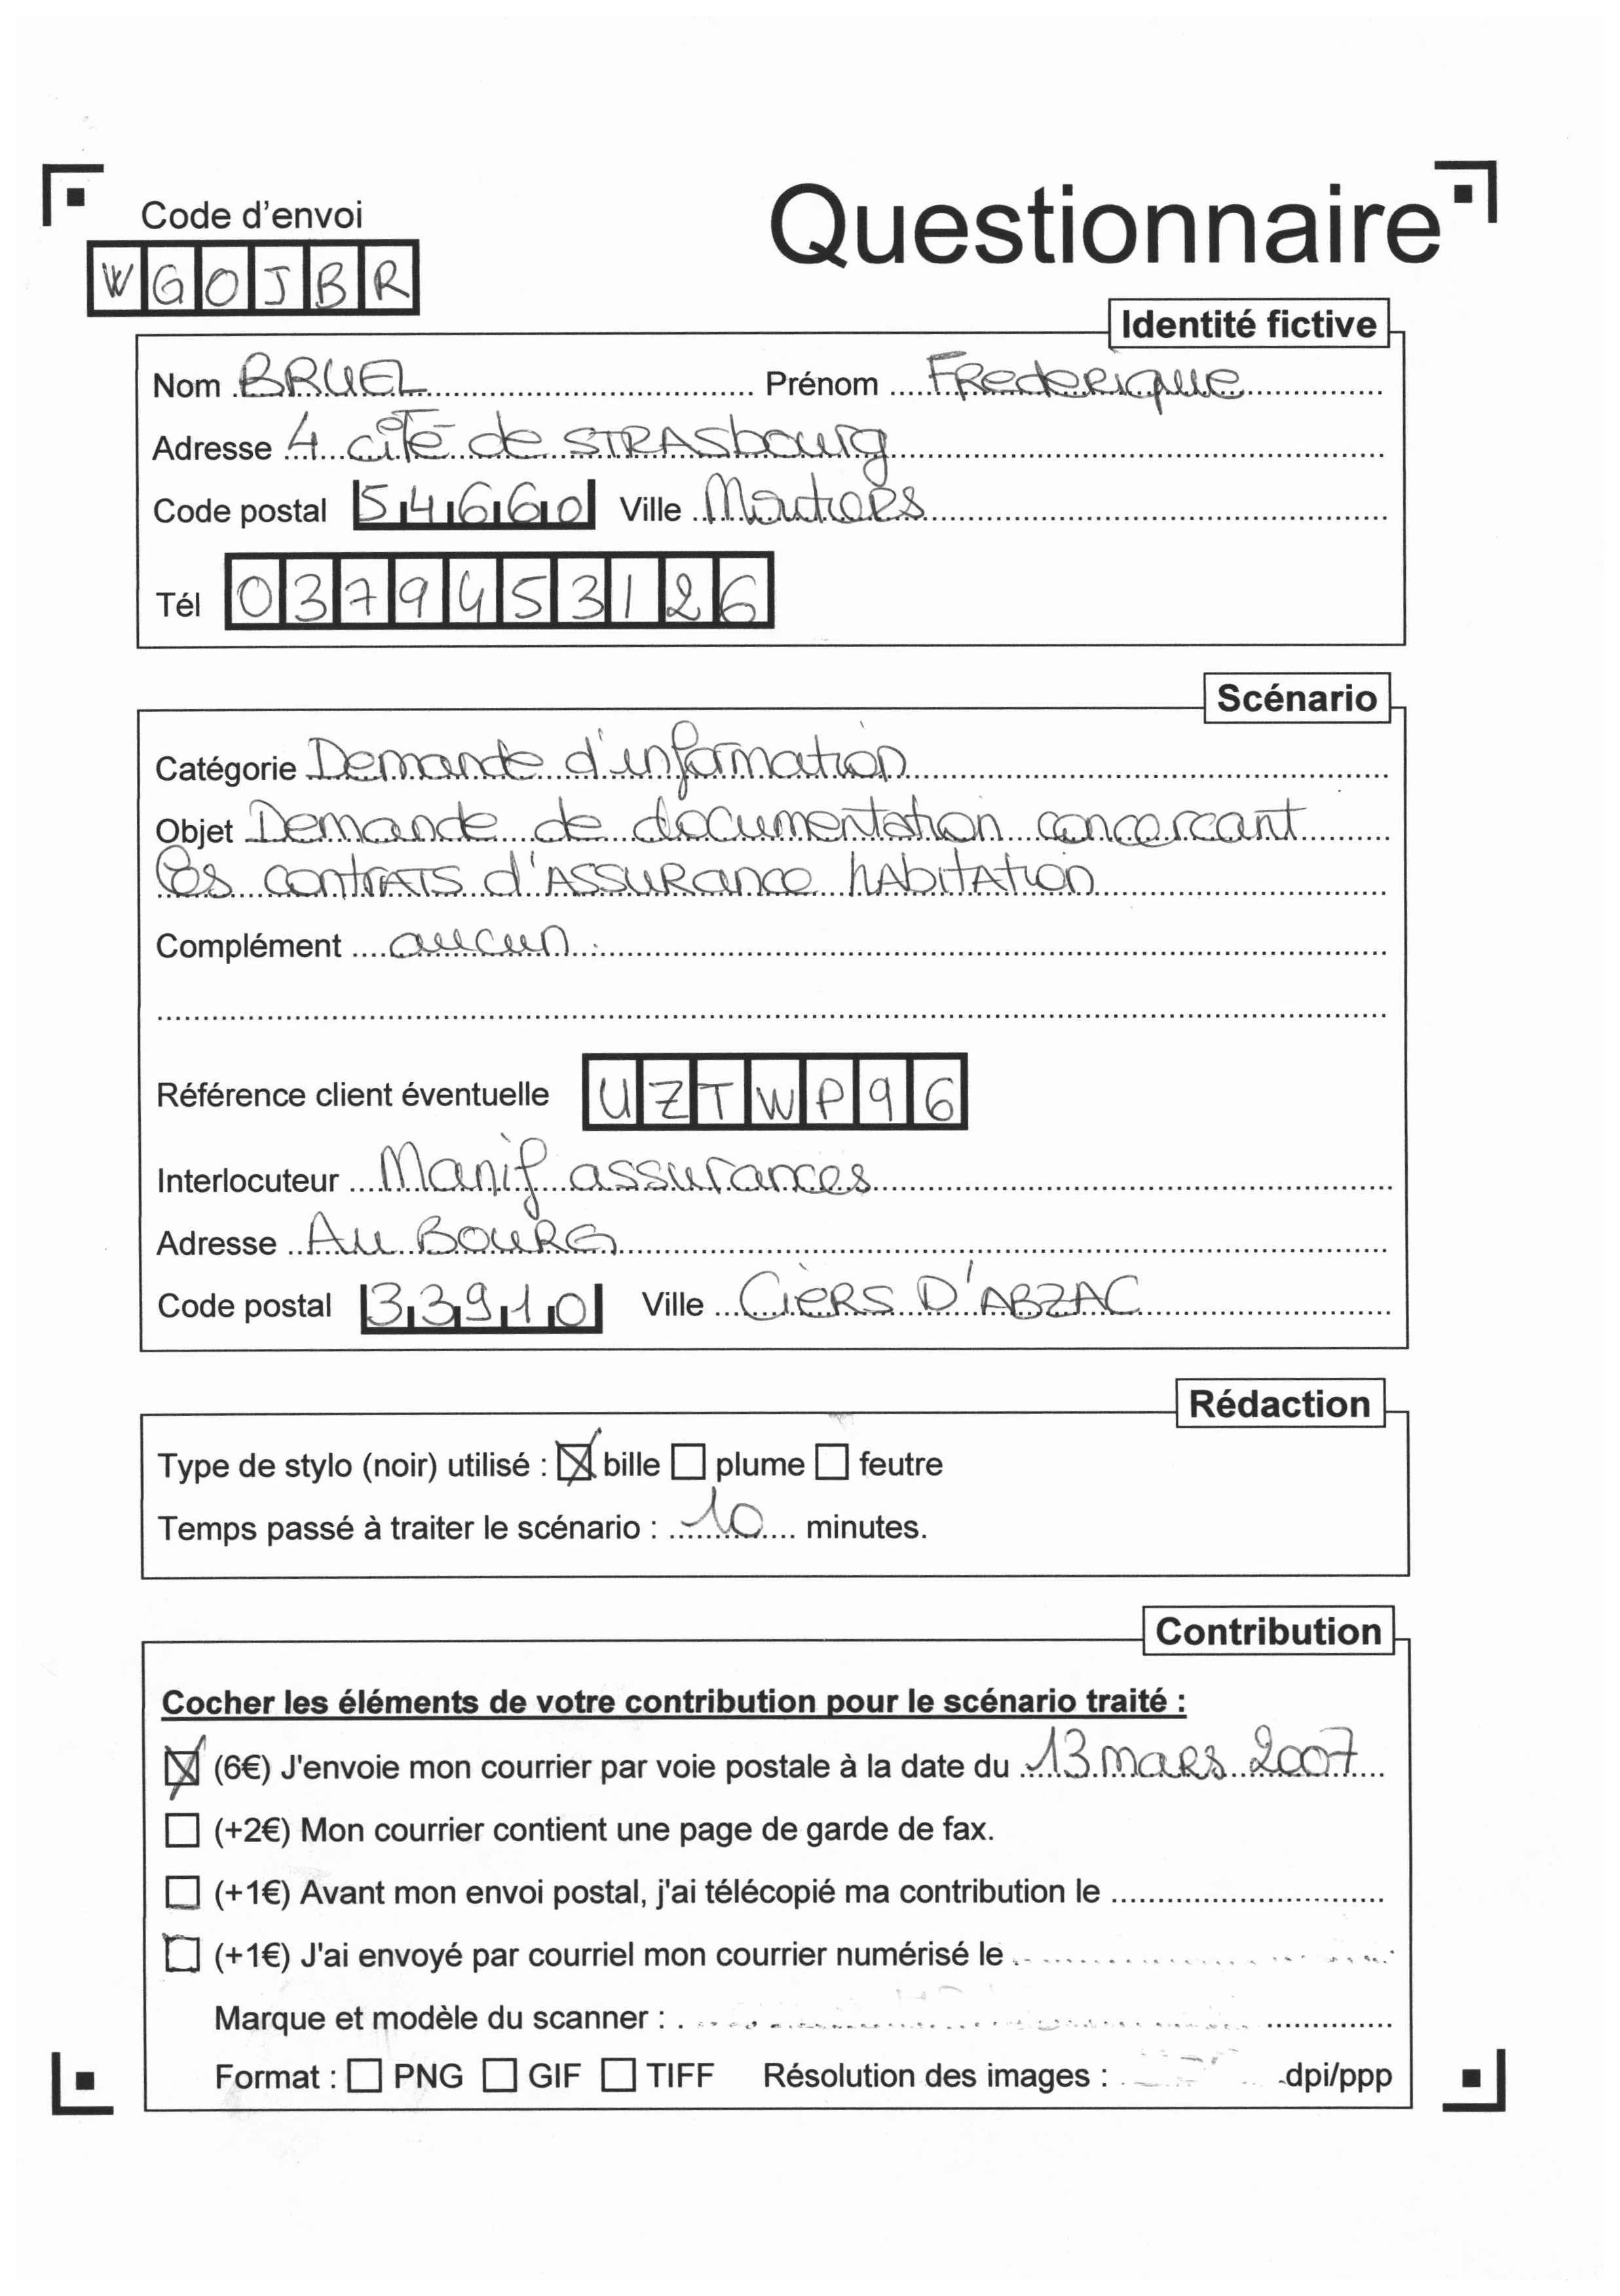 Code d'envoi
Questionnaire
WGOJBR
Identité fictive
Nom BRUEL Prénom FRederique
Adresse 4 cité de STRASbourg
Code postal 54660 Ville Moutiers
Tél 0379453126
Scénario
Catégorie Demande d'information
Objet Demande de documentation concercant
les contrATS d'ASSURance hAbitATion
Complément aucun
Référence client éventuelle UZTWP96
Interlocuteur Manif assurances
Adresse Au BOURG
Code postal 33910 Ville CiERS D'ABZAC
Rédaction
Type de stylo (noir) utilisé : ☒ bille ☐ plume ☐ feutre
Temps passé à traiter le scénario : 10 minutes.
Contribution
Cocher les éléments de votre contribution pour le scénario traité :
☒ (6€) J'envoie mon courrier par voie postale à la date du 13 maRs 2007
☐ (+2€) Mon courrier contient une page de garde de fax.
☐ (+1€) Avant mon envoi postal, j'ai télécopié ma contribution le
☐ (+1€) J'ai envoyé par courriel mon courrier numérisé le
Marque et modèle du scanner :
Format : ☐ PNG ☐ GIF ☐ TIFF Résolution des images : dpi/ppp